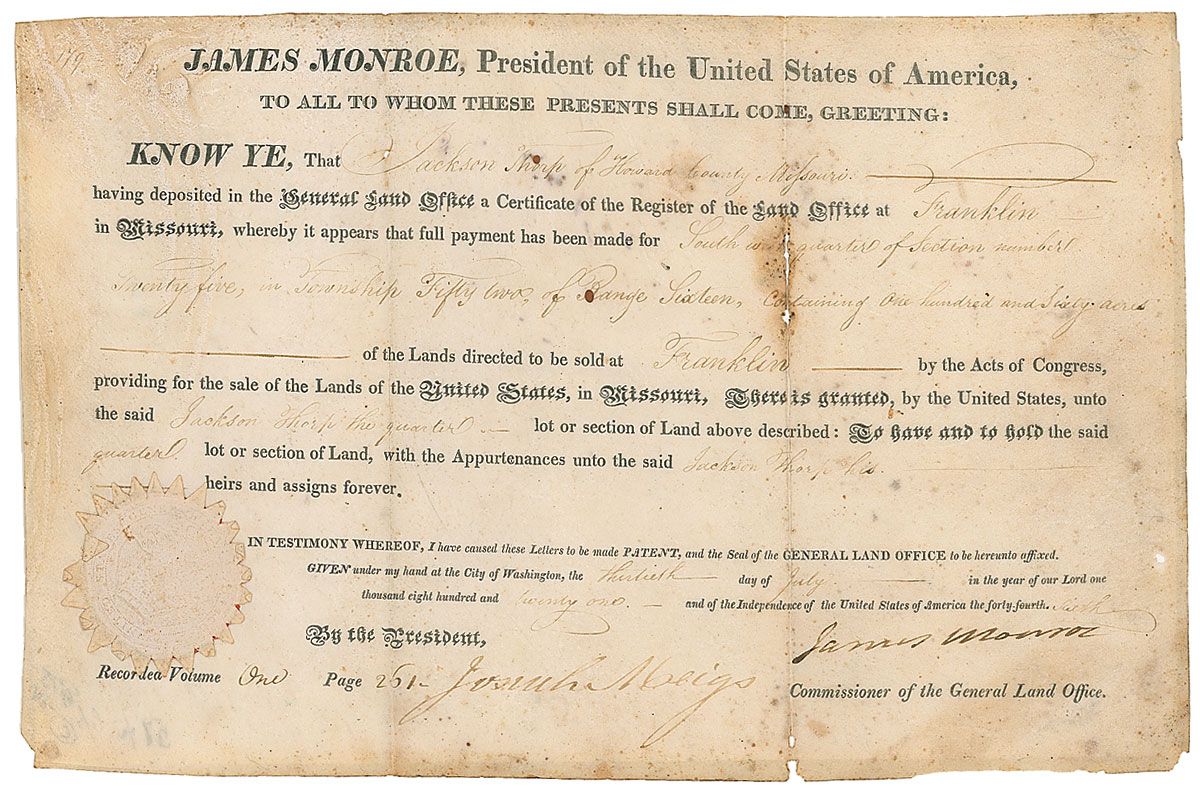 JAMES MONROE, President of the United States of America,
TO ALL TO WHOM THESE PRESENTS SHALL COME, GREETING:
KNOW YE, That Jackson Thorp of Howard County Missouri
having deposited in the General Land Office a Certificate of the Register of the Land Office at Franklin
in Missouri, whereby it appears that full payment has been made for South quarter of Section number
Twenty five, in Township Fifty two, of Range Sixteen, Containing One hundred and Sixty acres
of the Lands directed to be sold at Franklin by the Acts of Congress,
providing for the sale of the Lands of the United States, in Missouri, There is granted, by the United States, unto
the said Jackson Thorp the quarter lot or section of Land above described: To have and to hold the said
quarter lot or section of Land, with the Appurtenances unto the said Jackson Thorp his
heirs and assigns forever.
IN TESTIMONY WHEREOF, I have caused these Letters to be made PATENT, and the Seal of the GENERAL LAND OFFICE to be hereunto affixed.
GIVEN under my hand at the City of Washington, the thirtieth day of July in the year of our Lord one
thousand eight hundred and twenty one. and of the Independence of the United States of America the forty-fourth. sixth
By the President, James Monroe
Recorded Volume One Page 251 Josiah Meigs Commissioner of the General Land Office.